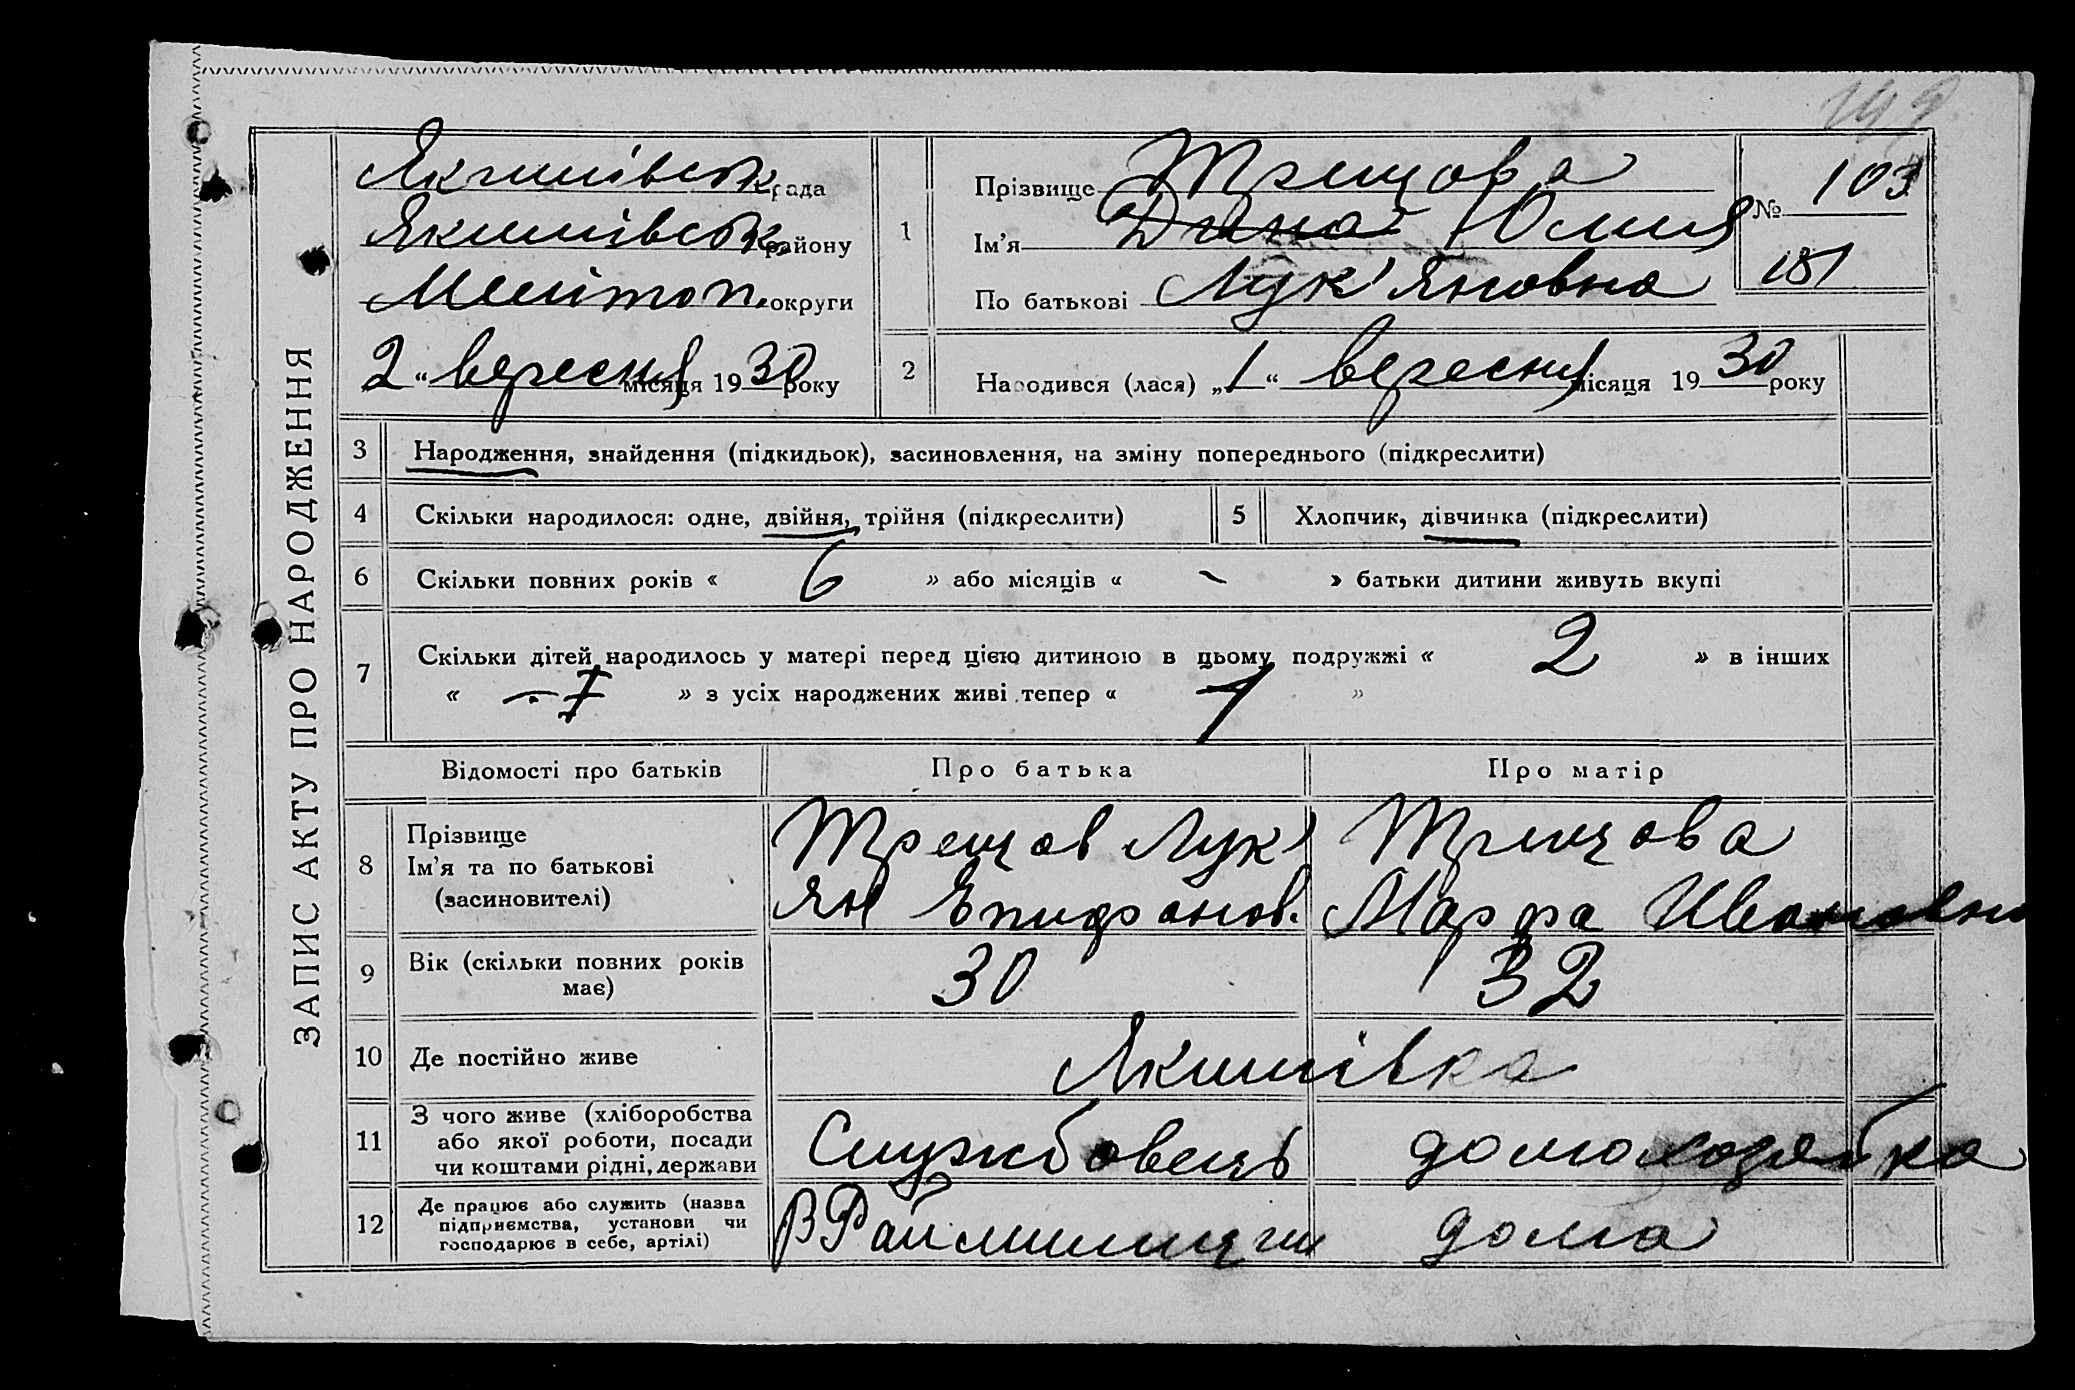 ЗАПИС АКТУ ПРО НАРОДЖЕННЯ
Якимівськ. рада
Якимівськ. району
Мелітоп. округи
2 “ вересня місяця 1930 року
1
Прізвище Трещова
Ім’я Діяна Юлия
По батькові Лук’яновна
№ 103
181
2
Народився (лася) „1“ вересня місяця 1930 року
3 Народження, знайдення (підкидьок), засиновлення, на зміну попереднього (підкреслити)
4 Скільки народилося: одне, двійня, трійня (підкреслити)
5 Хлопчик, дівчинка (підкреслити)
6 Скільки повних років « 6 » або місяців « – » батьки дитини живуть вкупі
7 Скільки дітей народилось у матері перед цією дитиною в цьому подружжі « 2 » в інших
« – » з усіх народжених живі тепер « 1 »
Відомості про батьків Про батька Про матір
8 Прізвище
Ім’я та по батькові
(засиновителі)
Трещов Лук’
ян Епифанов.
Трещова
Марфа Ивановна
9 Вік (скільки повних років
має)
30 32
10 Де постійно живе Якимівка
11 З чого живе (хліборобства
або якої роботи, посади
чи коштами рідні, держави
Службовець домохозяйка
12 Де працює або служить (назва
підприємства, установи чи
господарює в себе, артілі)
В Райміліции дома